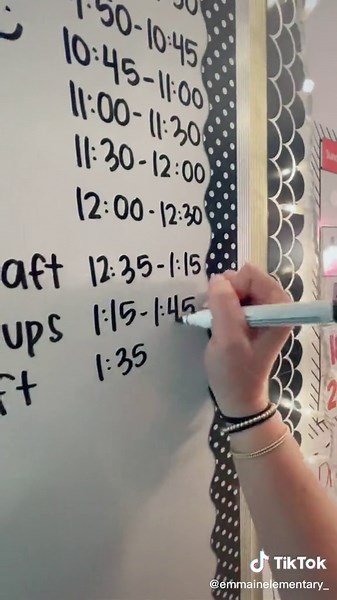 :50-10:45
10:45-11:00
11:00-11:30
11:30-12:00
12:00-12:30
aft 12:35-1:15
ups 1:15-1:45
ft 1:35
TikTok
@emmainelementary_